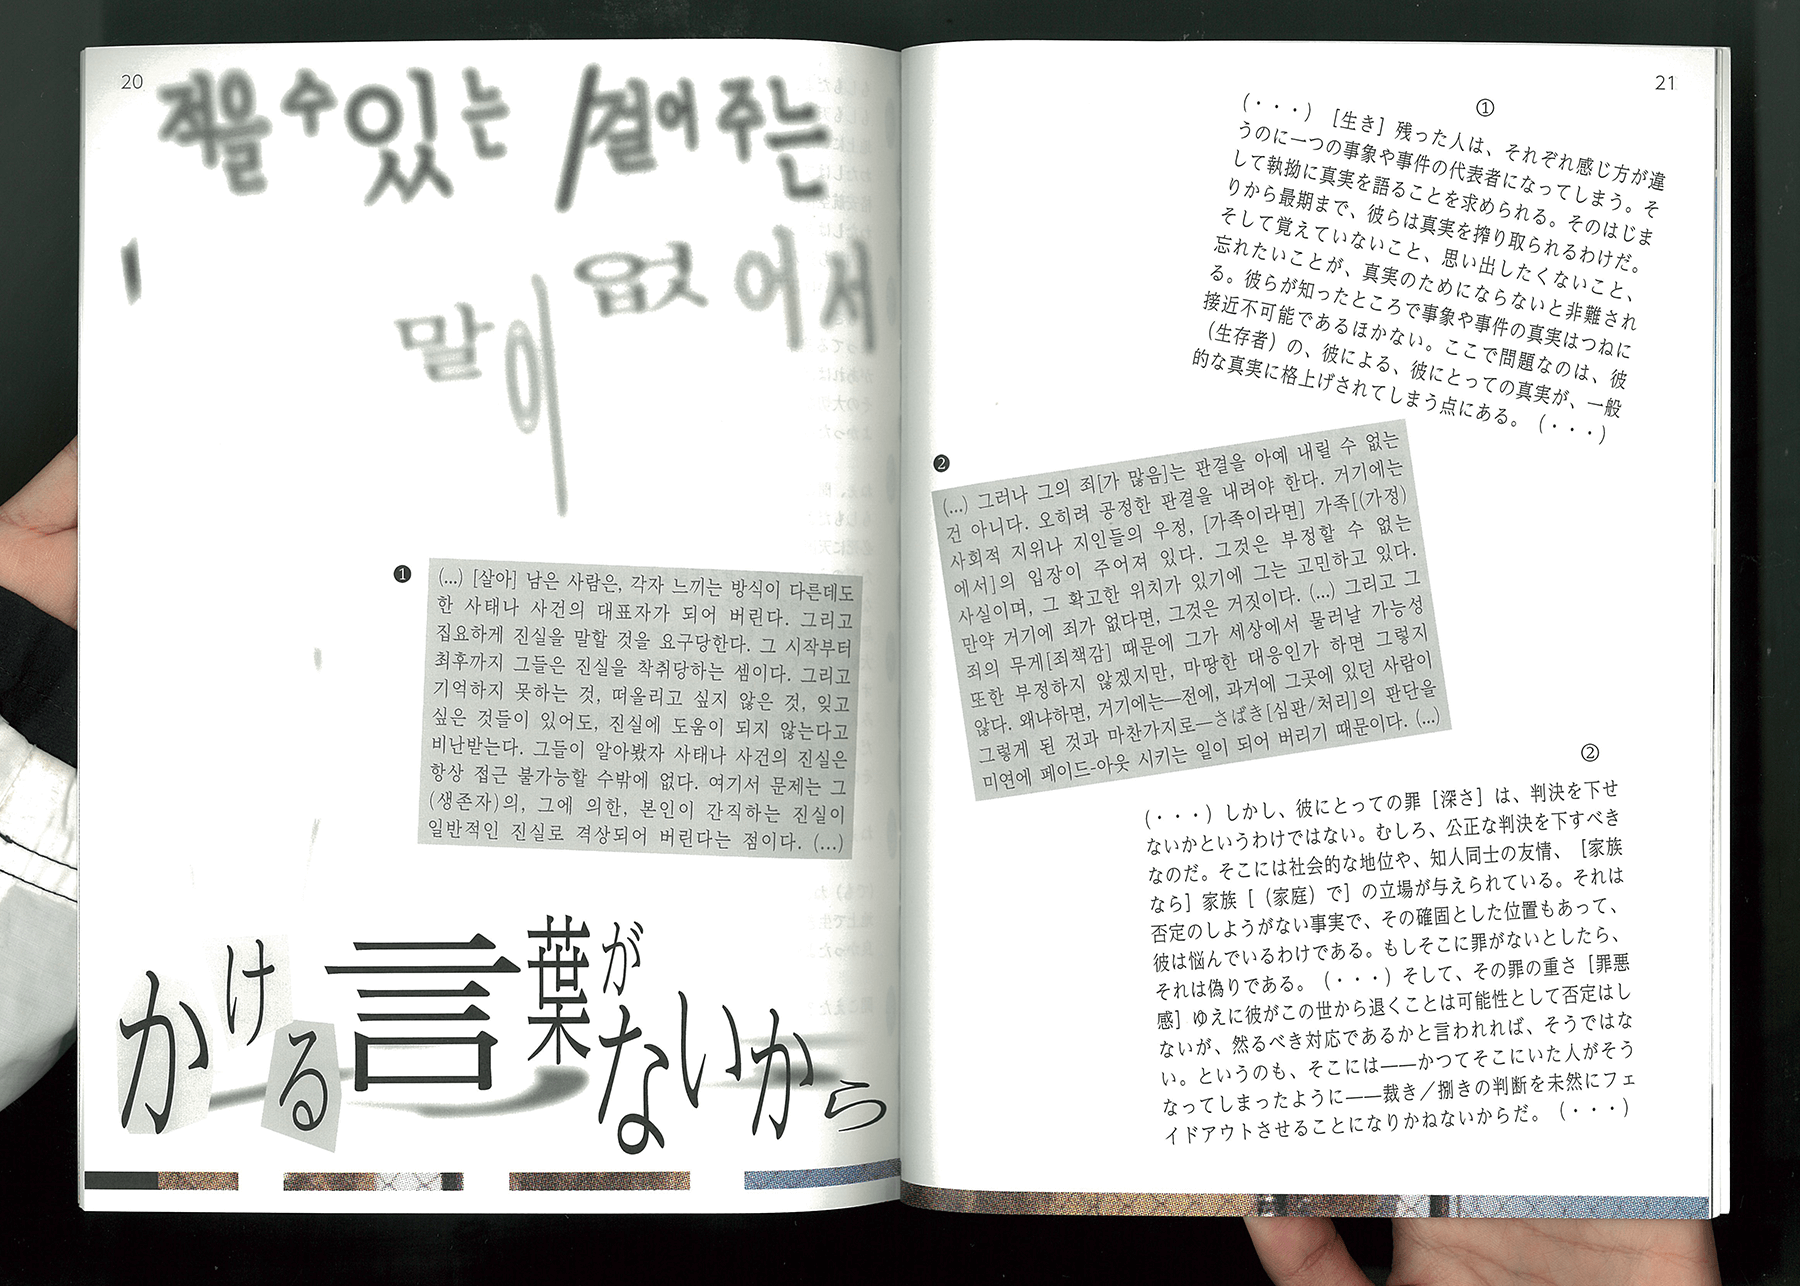 20
적을 수 있는 /걸어 주는
말이 없어서
❶
(...) [살아] 남은 사람은, 각자 느끼는 방식이 다른데도
한 사태나 사건의 대표자가 되어 버린다. 그리고
집요하게 진실을 말할 것을 요구당한다. 그 시작부터
최후까지 그들은 진실을 착취당하는 셈이다. 그리고
기억하지 못하는 것, 떠올리고 싶지 않은 것, 잊고
싶은 것들이 있어도, 진실에 도움이 되지 않는다고
비난받는다. 그들이 알아봤자 사태나 사건의 진실은
항상 접근 불가능할 수밖에 없다. 여기서 문제는 그
(생존자)의, 그에 의한, 본인이 간직하는 진실이
일반적인 진실로 격상되어 버린다는 점이다. (...)
かける言葉がないから
21
①
(・・・) [生き] 残った人は、それぞれ感じ方が違
うのに一つの事象や事件の代表者になってしまう。そ
して執拗に真実を語ることを求められる。そのはじま
りから最期まで、彼らは真実を搾り取られるわけだ。
そして覚えていないこと、思い出したくないこと、
忘れたいことが、真実のためにならないと非難され
る。彼らが知ったところで事象や事件の真実はつねに
接近不可能であるほかない。ここで問題なのは、彼
(生存者) の、彼による、彼にとっての真実が、一般
的な真実に格上げされてしまう点にある。(・・・)
❷
(...) 그러나 그의 죄[가 많음]는 판결을 아예 내릴 수 없는
건 아니다. 오히려 공정한 판결을 내려야 한다. 거기에는
사회적 지위나 지인들의 우정, [가족이라면] 가족[(가정)
에서]의 입장이 주어져 있다. 그것은 부정할 수 없는
사실이며, 그 확고한 위치가 있기에 그는 고민하고 있다.
만약 거기에 죄가 없다면, 그것은 거짓이다. (...) 그리고 그
죄의 무게[죄책감] 때문에 그가 세상에서 물러날 가능성
또한 부정하지 않겠지만, 마땅한 대응인가 하면 그렇지
않다. 왜냐하면, 거기에는—전에, 과거에 그곳에 있던 사람이
그렇게 된 것과 마찬가지로—さばき[심판/처리]의 판단을
미연에 페이드-아웃 시키는 일이 되어 버리기 때문이다. (...)
②
(・・・) しかし、彼にとっての罪 [深さ] は、判決を下せ
ないかというわけではない。むしろ、公正な判決を下すべき
なのだ。そこには社会的な地位や、知人同士の友情、[家族
なら] 家族 [ (家庭) で] の立場が与えられている。それは
否定のしようがない事実で、その確固とした位置もあって、
彼は悩んでいるわけである。もしそこに罪がないとしたら、
それは偽りである。(・・・) そして、その罪の重さ [罪悪
感] ゆえに彼がこの世から退くことは可能性として否定はし
ないが、然るべき対応であるかと言われれば、そうではな
い。というのも、そこには——かつてそこにいた人がそう
なってしまったように——裁き／捌きの判断を未然にフェ
イドアウトさせることになりかねないからだ。(・・・)